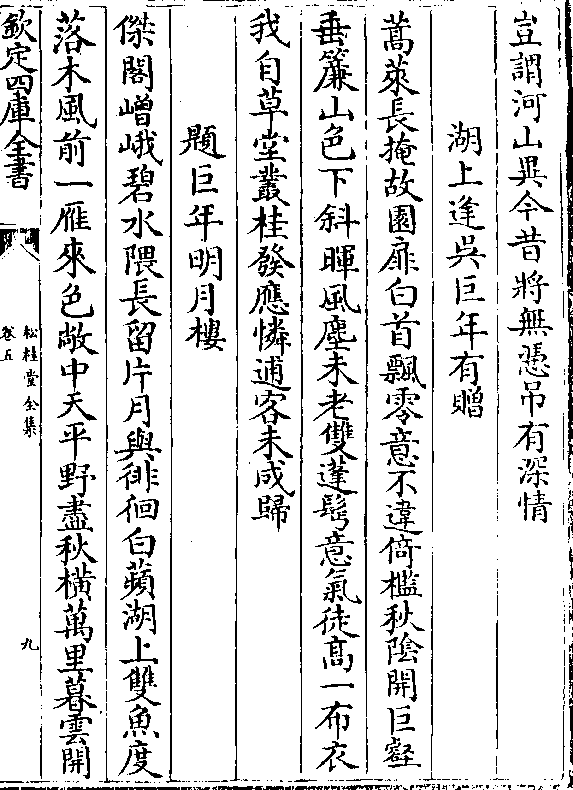 豈謂河山異今昔將無憑吊有深情
湖上逢吳巨年有贈
蒿萊長掩故園扉白首飄零意不違倚檻秋陰開巨壑
垂簾山色下斜暉風塵未老雙蓬鬂意氣徒高一布衣
我自草堂叢桂發應憐逋客未成歸
題巨年明月樓
傑閣嶒峨碧水隈長留片月與徘徊白蘋湖上雙魚度
落木風前一雁來色敞中天平野盡秋橫萬里暮雲開
欽定四庫全書
松桂堂全集
卷五
九